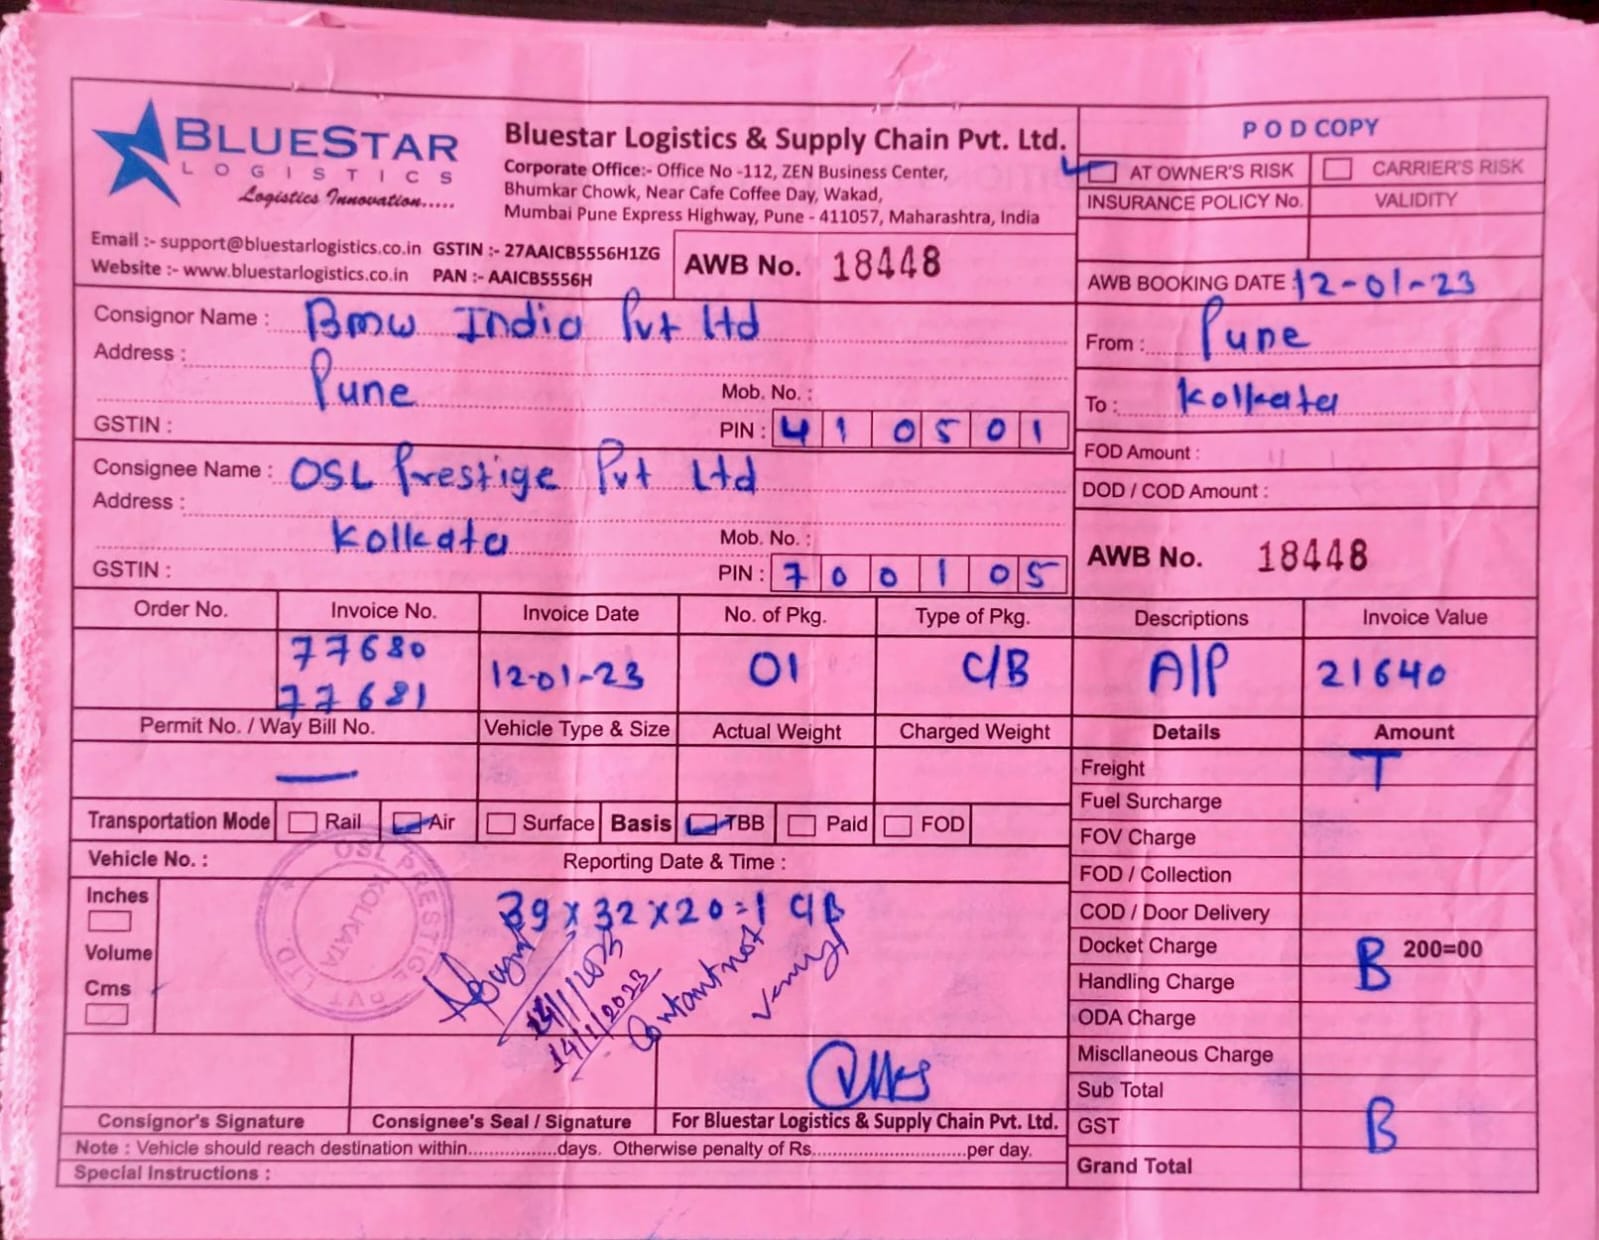 BLUESTAR
LOGISTICS
Logistics Innovation.....
Bluestar Logistics & Supply Chain Pvt. Ltd.
Corporate Office:- Office No -112, ZEN Business Center,
Bhumkar Chowk, Near Cafe Coffee Day, Wakad,
Mumbai Pune Express Highway, Pune - 411057, Maharashtra, India
Email :- support@bluestarlogistics.co.in GSTIN :- 27AAICB5556H1ZG
Website :- www.bluestarlogistics.co.in PAN :- AAICB5556H
AWB No. 18448
POD COPY
AT OWNER'S RISK CARRIER'S RISK
INSURANCE POLICY No. VALIDITY
AWB BOOKING DATE : 12-01-23
From : Pune
To : Kolkata
FOD Amount :
DOD / COD Amount :
AWB No. 18448
Consignor Name : Bmw India Pvt Ltd
Address :
Pune Mob. No. :
GSTIN : PIN : 410501
Consignee Name : OSL Prestige Pvt Ltd
Address :
Kolkata Mob. No. :
GSTIN : PIN : 700105
Order No. Invoice No. Invoice Date No. of Pkg. Type of Pkg. Descriptions Invoice Value
77680
77681 12-01-23 01 C/B A/P 21640
Permit No. / Way Bill No. Vehicle Type & Size Actual Weight Charged Weight Details Amount
—
Transportation Mode Rail Air Surface Basis TBB Paid FOD
Vehicle No. : Reporting Date & Time :
Inches
Volume
Cms
39 x 32 x 20 = 1 C/B
14/1/2023
14/1/2023
OSL PRESTIGE PVT LTD
KOLKATA
Freight T
Fuel Surcharge
FOV Charge
FOD / Collection
COD / Door Delivery
Docket Charge B 200=00
Handling Charge
ODA Charge
Miscllaneous Charge
Sub Total
GST B
Grand Total
Consignor's Signature Consignee's Seal / Signature For Bluestar Logistics & Supply Chain Pvt. Ltd.
Note : Vehicle should reach destination within.................days. Otherwise penalty of Rs..............................per day.
Special Instructions :